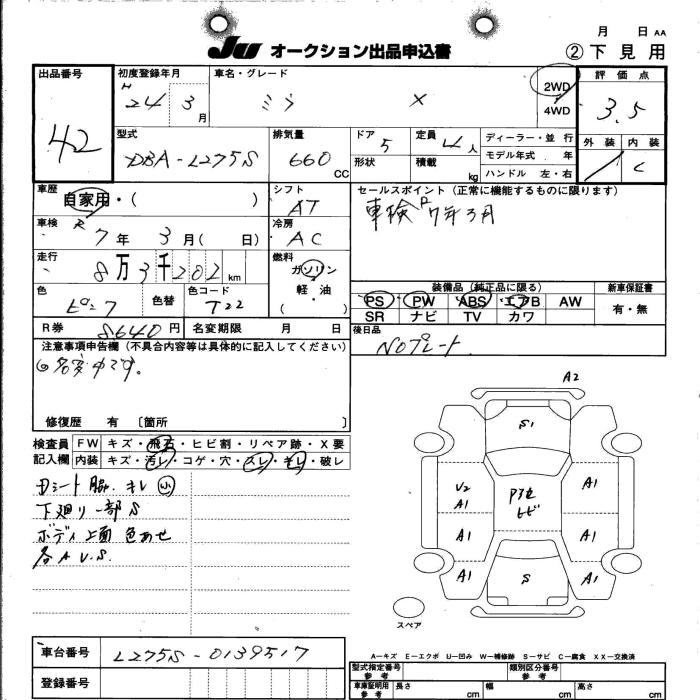 月 日 AA
JU オークション出品申込書
② 下見用
出品番号
42
初度登録年月
H 24 3 月
車名・グレード
ミラ X
2WD
4WD
評価点
3.5
外装 内装
C
型式
DBA-L275S
排気量
660 CC
ドア
5
形状
定員
4人
積載
kg
ディーラー・並行
モデル年式 年
ハンドル 左・右
車歴
自家用・( )
シフト
AT
セールスポイント (正常に機能するものに限ります)
車検R7年3月
車検
R 7年 3月( 日)
冷房
AC
走行
8万3千202 km
燃料
ガソリン
軽・油
( )
色
ピンク
色替
色コード
T22
装備品 (純正品に限る)
PS PW ABS エアB AW
SR ナビ TV カワ
新車保証書
有・無
R券 8640円
名変期限 月 日
後日品
NOプレート
注意事項申告欄 (不具合内容等は具体的に記入してください)
◎名変中です。
修復歴 有 〔箇所 〕
検査員
記入欄
FW キズ・飛石・ヒビ割・リペア跡・X要
内装 キズ・汚レ・コゲ・穴・スレ・キレ・破レ
Dシート脇 キレ 小
下廻り一部S
ボディ上面 色あせ
各A.U.S.
A2
S1
U2
A1
A1
ヒビ
A1
A1
A1
S
A1
スペア
A-キズ E-エクボ U-凹み W-補修跡 S-サビ C-腐食 XX-交換済
車台番号
L275S-0139517
登録番号
型式指定番号
参考
類別区分番号
参考
車庫証明用
参考
長さ cm
幅 cm
高さ cm